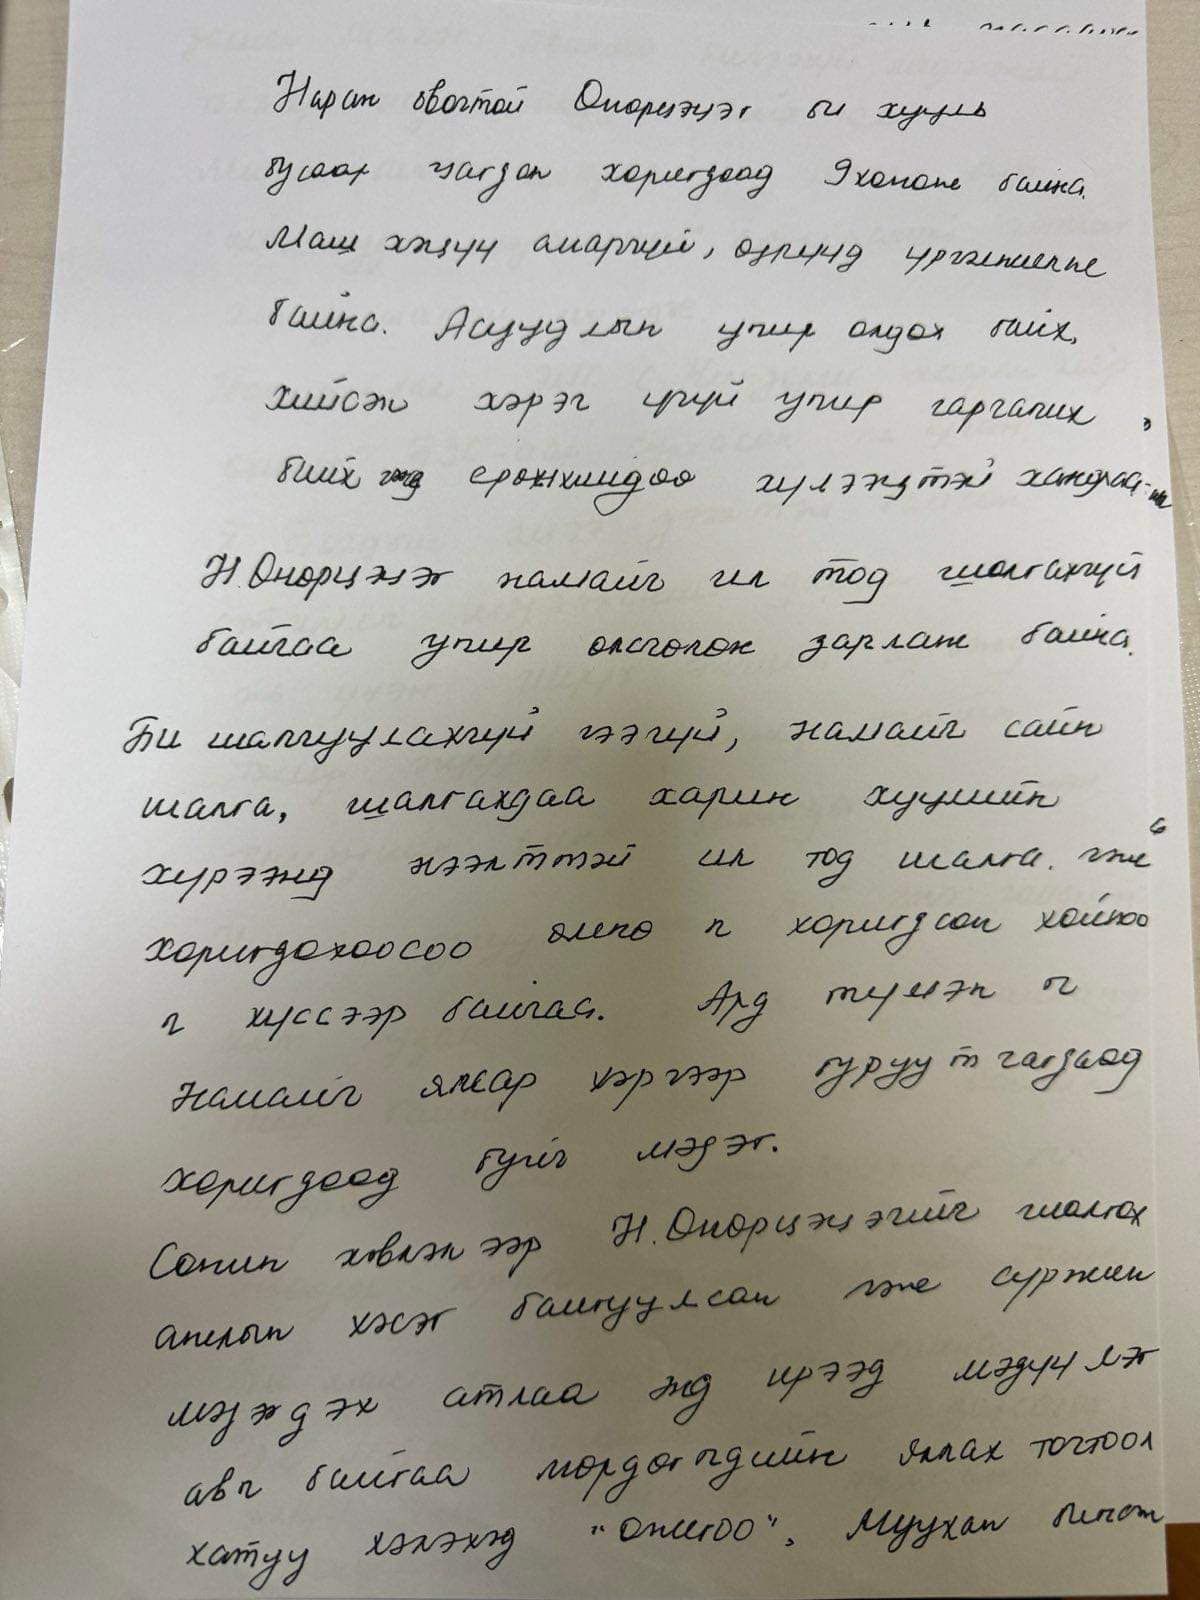 Наран овогтой Онорцэцэг би хууль
бусаар цагдан хоригдоод байна.
Маш хэцүү амаргүй, өдрүүд үргэлжилж
байна. Асуудлын учир олдох байх,
хийсэн хэрэг үгүй учир гаргачих
байх гэж ерөнхийдөө хүлээцтэй хандлаа
Н. Онорцэцэг намайг ил тод шалгахгүй
байгаа учир өлсгөлөн зарлаж байна.
Би шалгуулахгүй гээгүй, намайг сайн
шалга, шалгахдаа харин хуулийн
хүрээнд нээлттэй ил тод шалга. гэж
хоригдохоосоо өмнө ч хоригдсон хойноо
ч хүссээр байгаа. Ард түмэн ч
намайг ямар хэргээр буруутгагдаад
хоригдоод буйг мэдэг.
Сонин хэвлэлээр Н. Онорцэцэгийг шалгах
ажлын хэсэг байгуулсан гэж сурж
мэдэх атлаа энд ирээд мэдүүлэг
авч байгаа мөрдөгчдийн яллах тогтоол
хатуу хэлэхэд "онигоо", Муухан